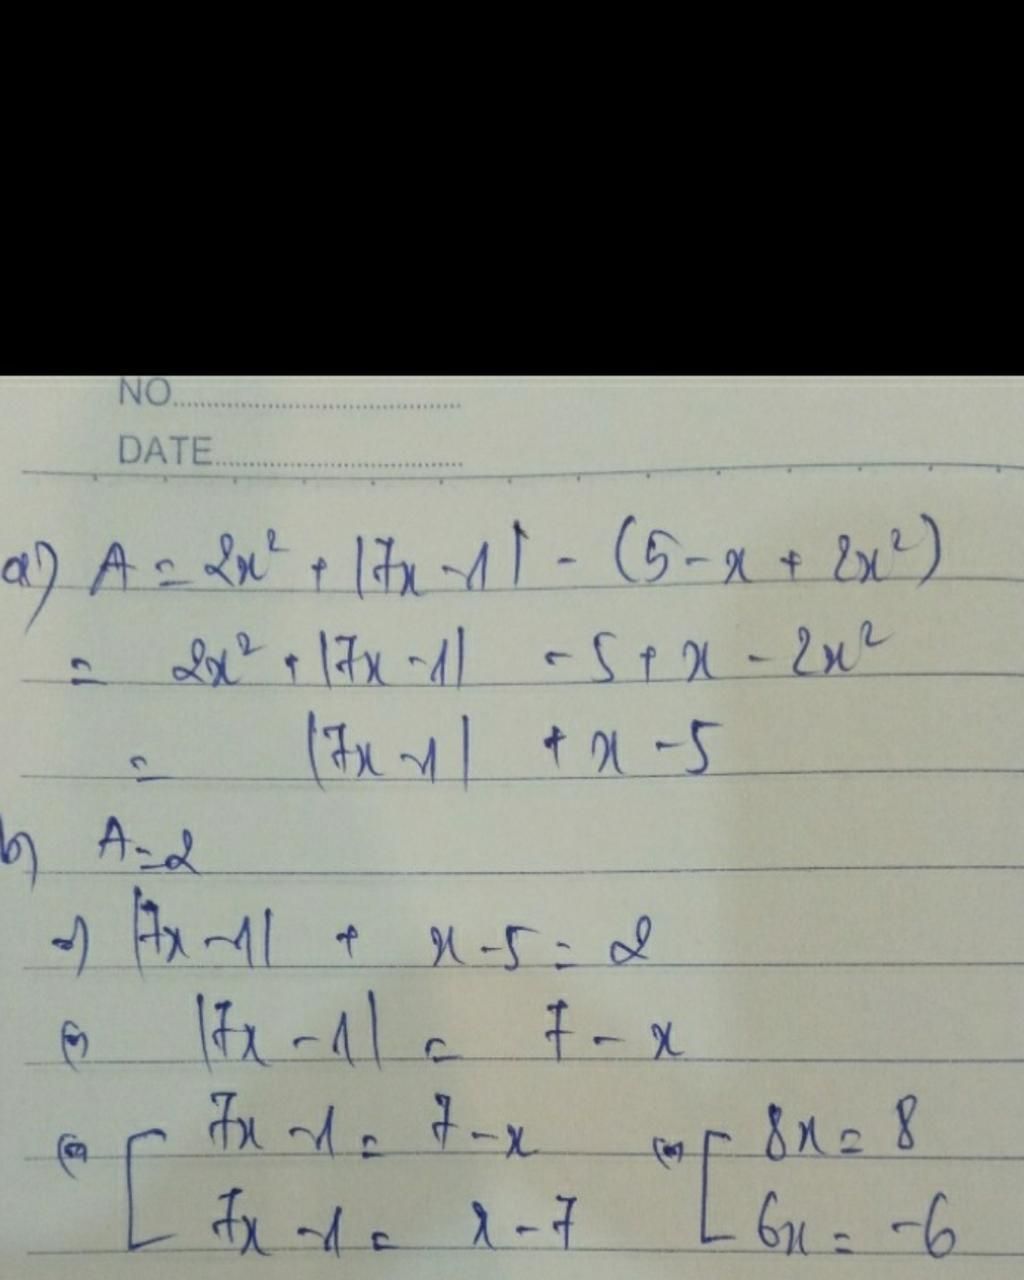 NO..............................
DATE..............................
a) A = 2x² + |7x - 1| - (5 - x + 2x²)
= 2x² + |7x - 1| - 5 + x - 2x²
= |7x - 1| + x - 5
b) A = 2
⇒ |7x - 1| + x - 5 = 2
⇔ |7x - 1| = 7 - x
⇔ [ 7x - 1 = 7 - x ⇔ [ 8x = 8
7x - 1 = x - 7 6x = -6